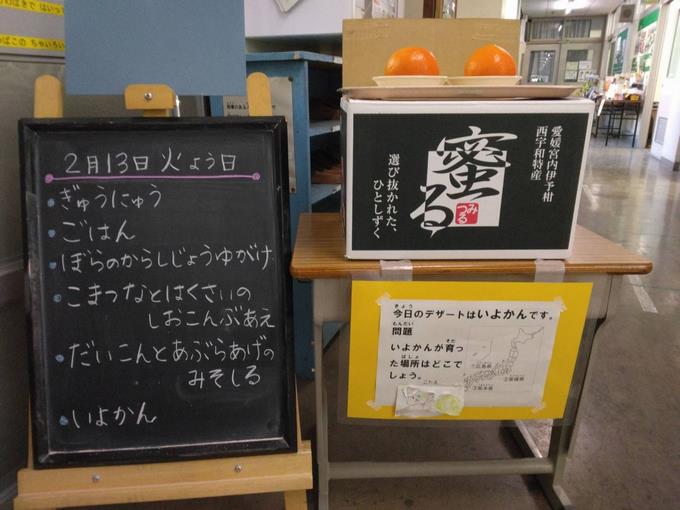 2月13日火よう日
・ぎゅうにゅう
・ごはん
・ぼらのからしじょうゆがけ
・こまつなとはくさいの
しおこんぶあえ
・だいこんとあぶらあげの
みそしる
・いよかん
愛媛宮内伊予柑
西宇和特産
蜜る
みつる
選び抜かれた、
ひとしずく
きょう
今日のデザートはいよかんです。
もんだい
問題
そだ
いよかんが育っ
ばしょ
た場所はどこで
しょう。
こたえ
①広島県
②愛媛県
③熊本県